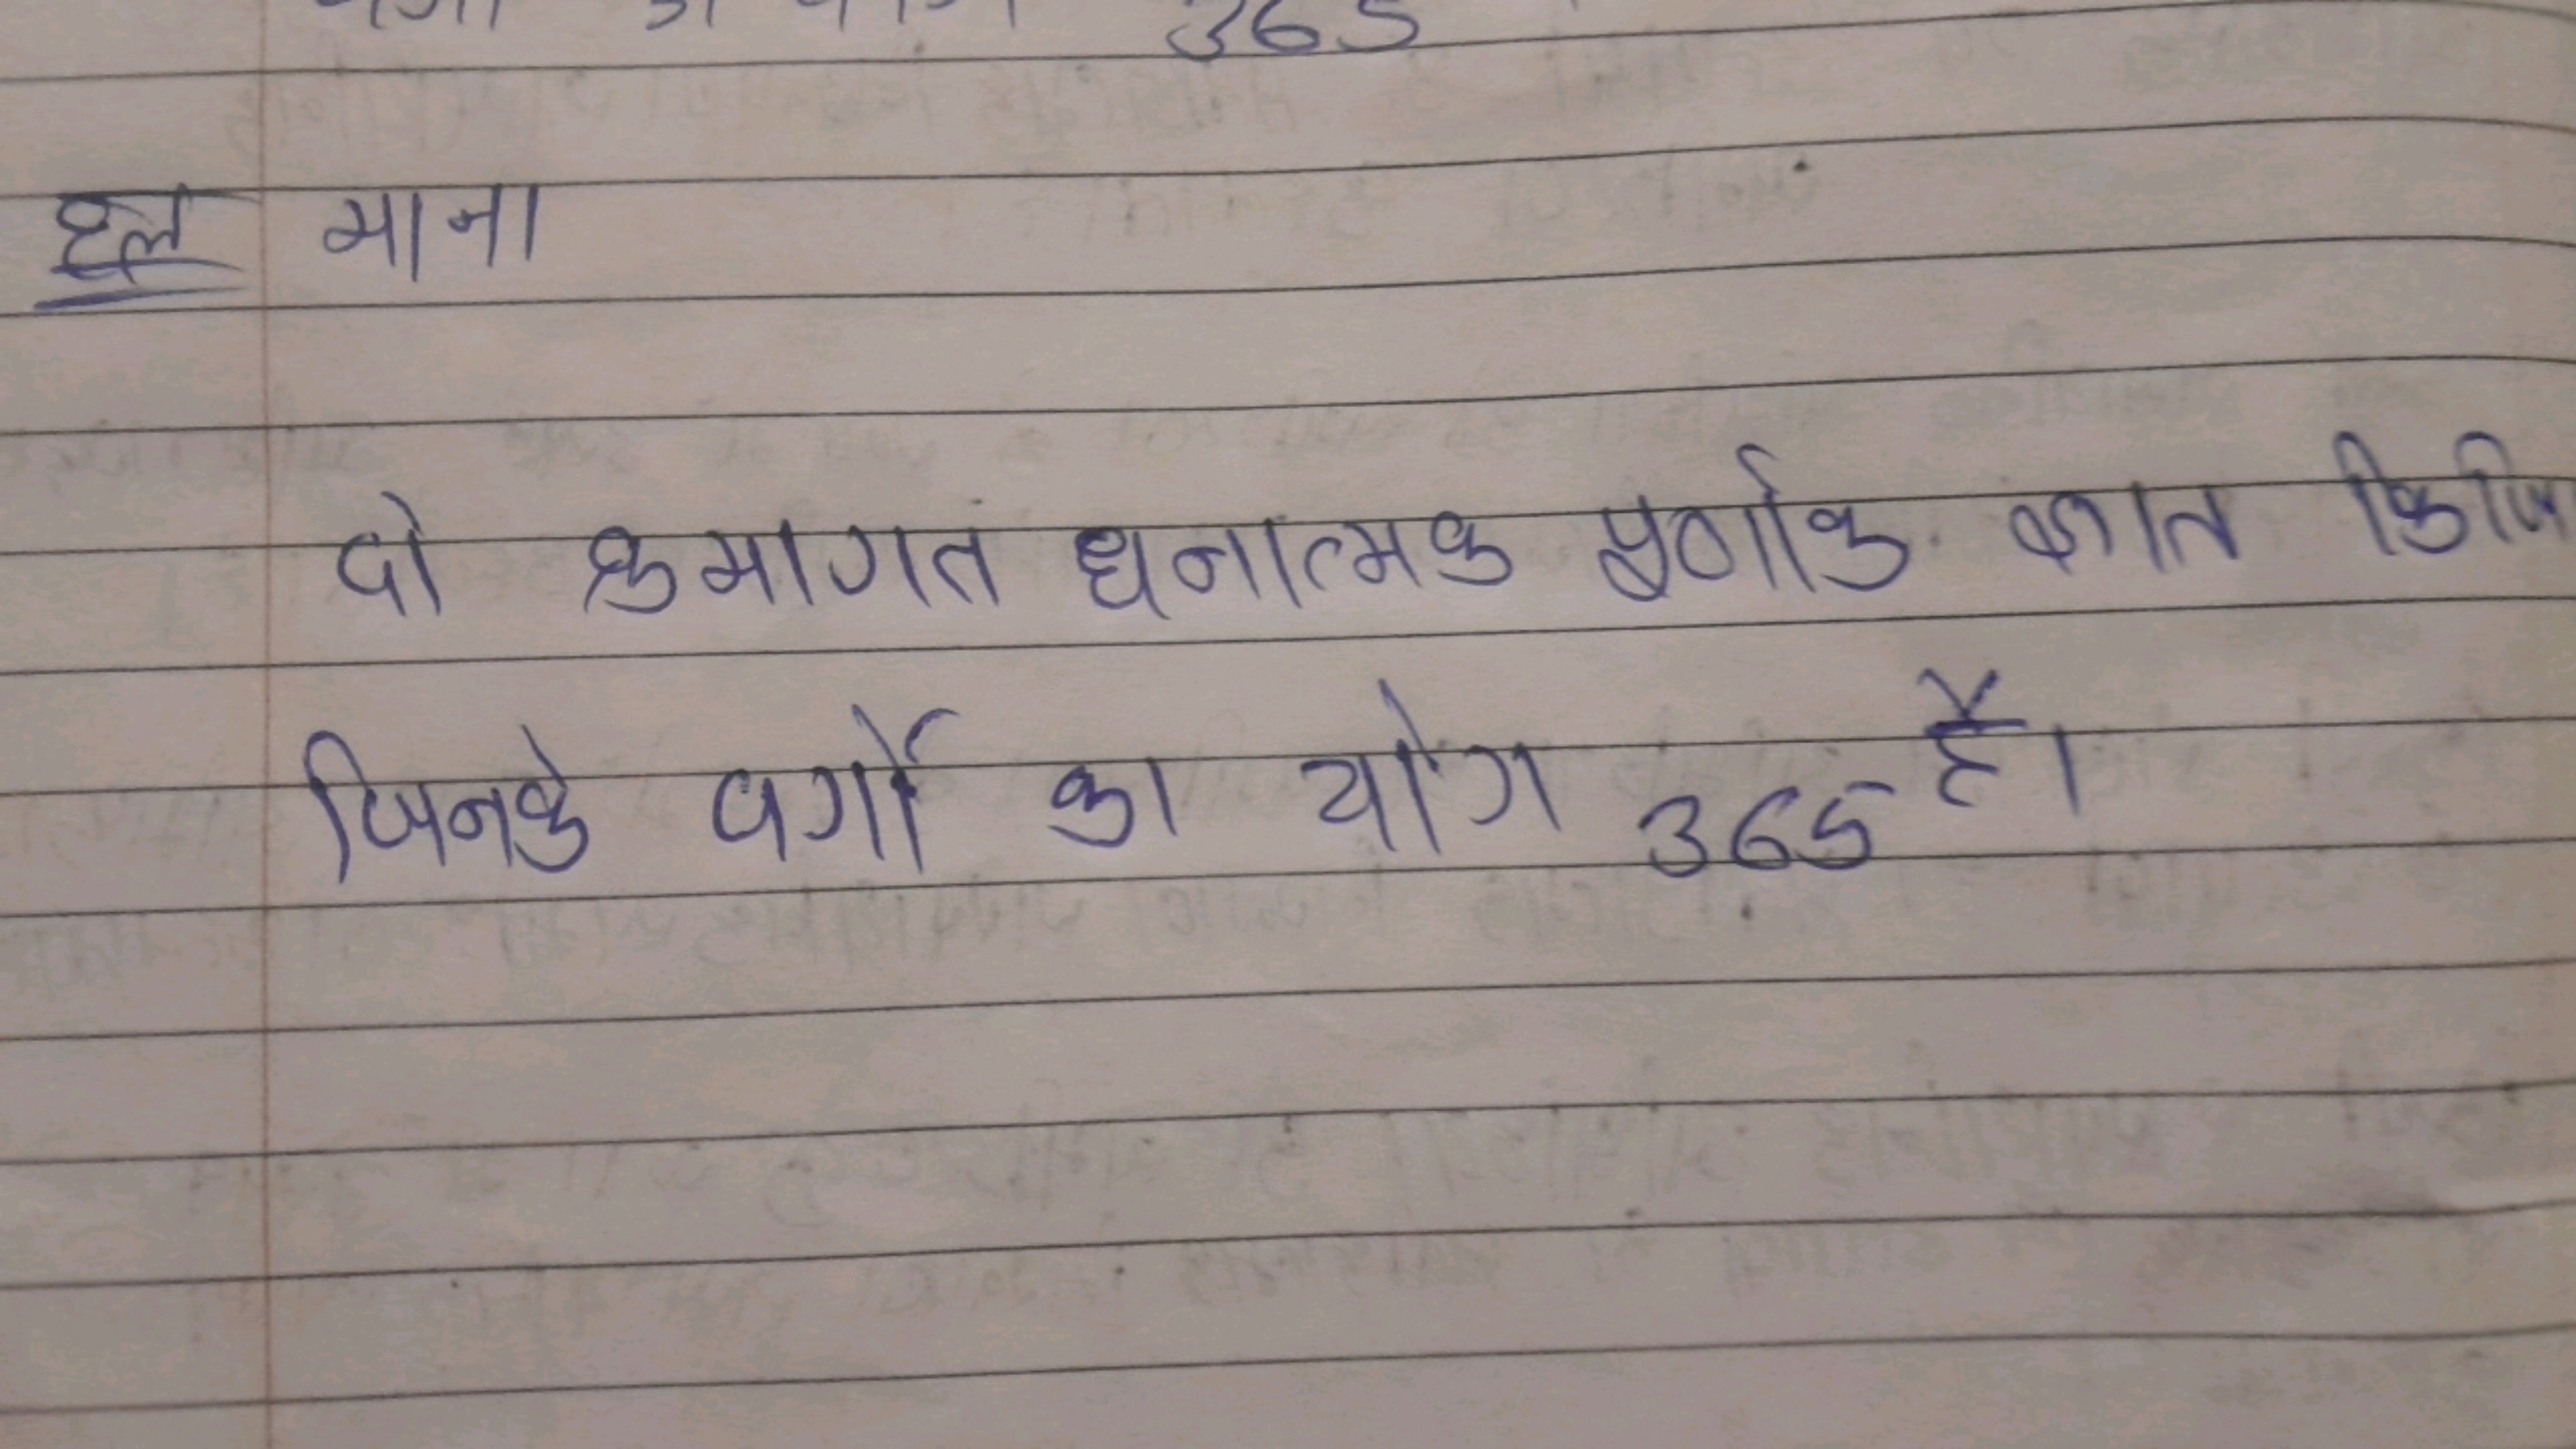 365
हल माना
दो क्रमागत धनात्मक पूर्णांक ज्ञात
जिनके वर्गों का योग 365 है।